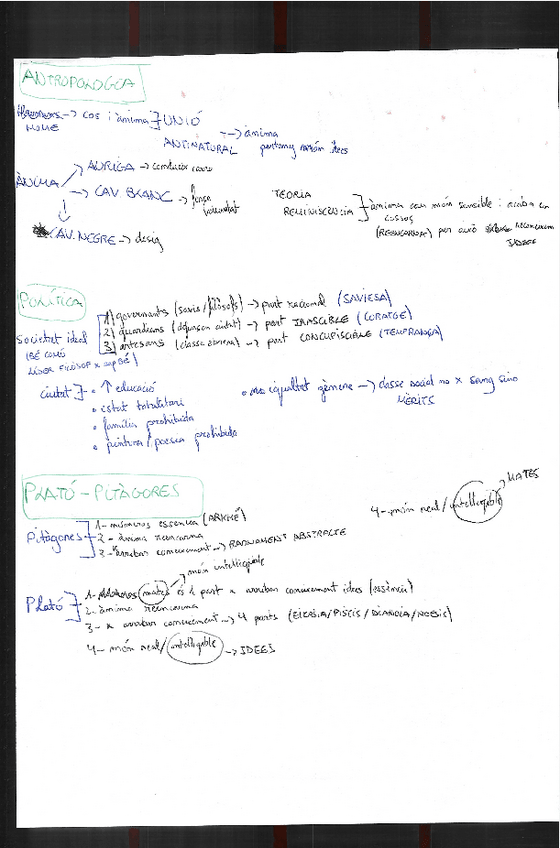 ANTROPOLÒGICA
HOME → cos i ànima } UNIÓ
ANTINATURAL → ànima
pertany món idees
ÀNIMA → AURIGA → conductor carro
→ CAV. BLANC → força
voluntat
→ CAV. NEGRE → desig
TEORIA
REMINISCÈNCIA } ànima cau món sensible i acaba en
cossos
(REENCARNA) per això RECONEIXEM
IDEES
POLÍTICA
Societat ideal
(BÉ COMÚ
LÍDER FILÒSOF x sap BÉ)
1) governants (savis/filòsofs) → part racional (SAVIESA)
2) guardians (defensen ciutat) → part IRASCIBLE (CORATGE)
3) artesans (classe obrera) → part CONCUPISCIBLE (TEMPRANÇA)
ciutat } • ↑ educació
• estat totalitari
• família prohibida
• pintura/poesia prohibida
• igualtat gènere → classe social no x sang sinó
MÈRITS
PLATÓ - PITÀGORES
Pitàgores
1- números essència (ARKHÉ)
2- ànima reencarna
3- arribar coneixement → RAONAMENT ABSTRACTE
4- món real/intel·ligible → MATES
món intel·ligible
Plató
1- mates és 1 part x arribar coneixement idees (essència)
2- ànima reencarna
3- x arribar coneixement → 4 parts (EIKASIA/PISTIS/DIANOIA/NOESIS)
4- món real/intel·ligible → IDEES